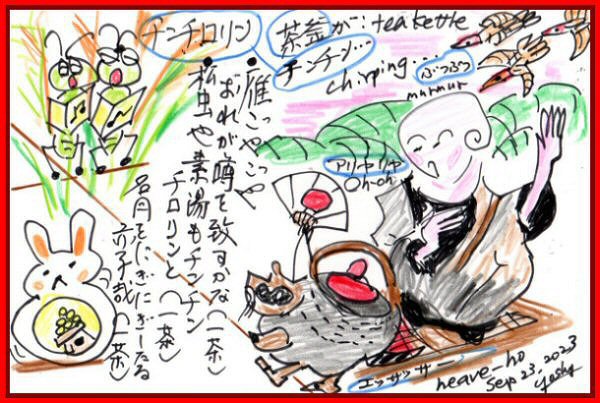 チンチロリン
茶釜が!tea kettle
チンチン…
chirping...
ぶつぶつ
murmur
アリャリャ
Oh-oh
・雁ごやごや
おれが噂を致すかな(一茶)
・松虫や素湯もチンチン
チロリンと(一茶)
名月をにぎにぎしたる
赤子哉(一茶)
エッサッサー
heave-ho
Sep 23, 2023
yoshy